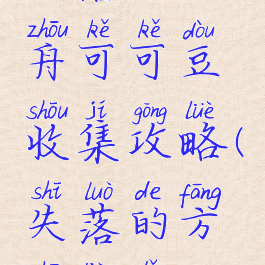 zhōu kě kě dòu
舟可可豆
shōu jí gōng lüè
收集攻略(
shī luò de fāng
失落的方